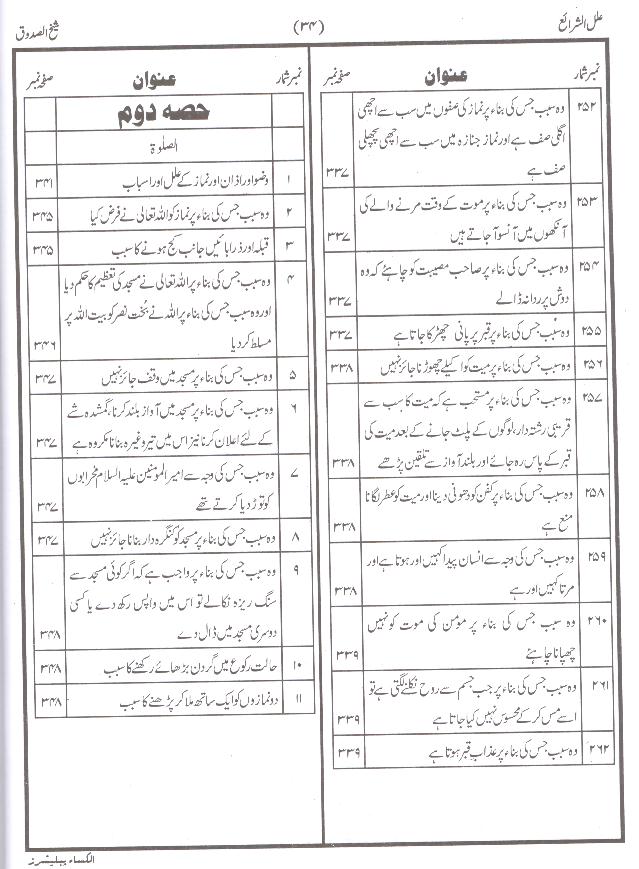 علل الشرائع (۳۴) شیخ الصدوق
نمبر شمار عنوان صفحہ نمبر
۲۵۲ وہ سبب جس کی بناء پر نماز کی صفوں میں سب سے اچھی
اگلی صف ہے اور نماز جنازہ میں سب سے اچھی پچھلی
صف ہے ۳۳۷
۲۵۳ وہ سبب جس کی بناء پر موت کے وقت مرنے والے کی
آنکھوں میں آنسو آجاتے ہیں ۳۳۷
۲۵۴ وہ سبب جس کی بناء پر صاحب مصیبت کو چاہئے کہ وہ
دوش پر ردا نہ ڈالے ۳۳۷
۲۵۵ وہ سبب جس کی بناء پر قبر پر پانی چھڑکا جاتا ہے ۳۳۷
۲۵۶ وہ سبب جس کی بناء پر میت کو اکیلے چھوڑنا جائز نہیں ۳۳۸
۲۵۷ وہ سبب جس کی بناء پر مستحب ہے کہ میت کا سب سے
قریبی رشتہ دار، لوگوں کے پلٹ جانے کے بعد میت کی
قبر کے پاس رہ جائے اور بلند آواز سے تلقین پڑھے ۳۳۸
۲۵۸ وہ سبب جس کی بناء پر کفن کو دھونی دینا اور میت کو عطر لگانا
منع ہے ۳۳۸
۲۵۹ وہ سبب جس کی وجہ سے انسان پیدا کہیں اور ہوتا ہے اور
مرتا کہیں اور ہے ۳۳۸
۲۶۰ وہ سبب جس کی بناء پر مومن کی موت کو نہیں
چھپانا چاہئے ۳۳۹
۲۶۱ وہ سبب جس کی بناء پر جب جسم سے روح نکلنے لگتی ہے تو
اسے مس کر کے محسوس نہیں کیا جاتا ہے ۳۳۹
۲۶۲ وہ سبب جس کی بناء پر عذاب قبر ہوتا ہے ۳۳۹
نمبر شمار عنوان صفحہ نمبر
حصہ دوم
الصلوٰۃ
۱ وضو اور اذان اور نماز کے علل اور اسباب ۳۴۱
۲ وہ سبب جس کی بناء پر نماز کو اللہ تعالیٰ نے فرض کیا ۳۴۵
۳ قبلہ اور ذرا بائیں جانب کج ہونے کا سبب ۳۴۵
۴ وہ سبب جس کی بناء پر اللہ تعالیٰ نے مسجد کی تعظیم کا حکم دیا
اور وہ سبب جس کی بناء پر اللہ نے بُخت نصر کو بیت اللہ پر
مسلط کر دیا ۳۴۶
۵ وہ سبب جس کی بناء پر مسجد میں وقف جائز نہیں ۳۴۷
۶ وہ سبب جس کی بناء پر مسجد میں آواز بلند کرنا، گمشدہ شے
کے لئے اعلان کرنا نیز اس میں تیر وغیرہ بنانا مکروہ ہے ۳۴۷
۷ وہ سبب جس کی وجہ سے امیر المومنین علیہ السلام محرابوں
کو توڑ دیا کرتے تھے ۳۴۷
۸ وہ سبب جس کی بناء پر مسجد کو کنگرہ دار بنانا جائز نہیں ۳۴۷
۹ وہ سبب جس کی بناء پر واجب ہے کہ اگر کوئی مسجد سے
سنگ ریزہ نکالے تو اس میں واپس رکھ دے یا کسی
دوسری مسجد میں ڈال دے ۳۴۸
۱۰ حالت رکوع میں گردن بڑھائے رکھنے کا سبب ۳۴۸
۱۱ دو نمازوں کو ایک ساتھ ملا کر پڑھنے کا سبب ۳۴۸
الکساء پبلیشرز